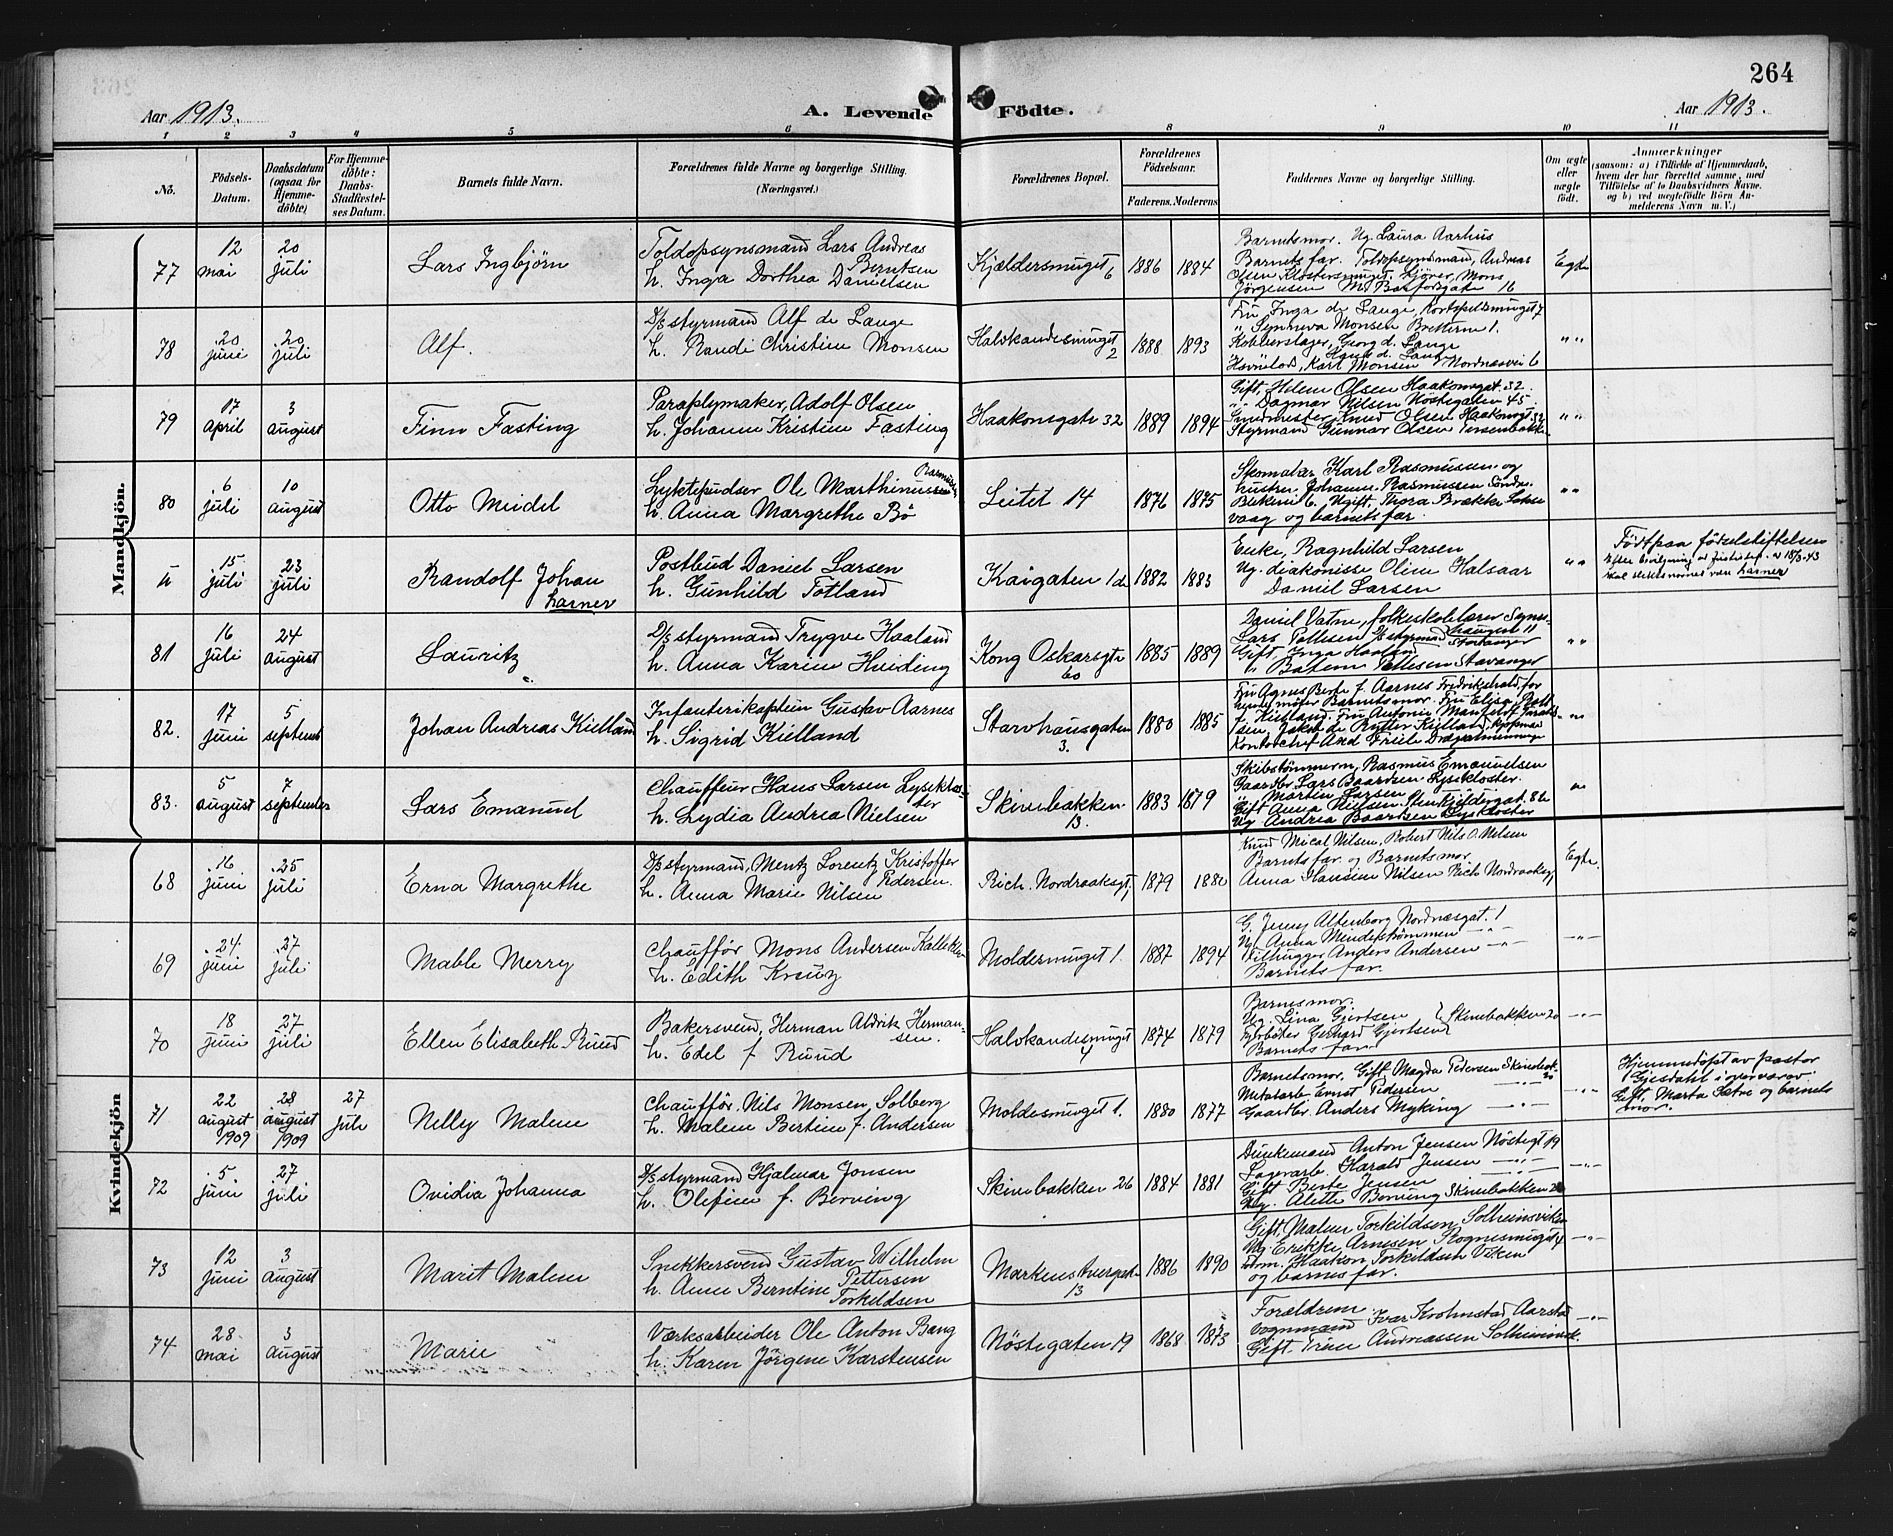 264
Aar 1913.
A. Levende Födte.
Aar 1913.
1 2 3 4 5 6 8 9 10 11
No.
Födsels-Datum.
Daabsdatum (ogsaa for Hjemmedöbte)
For Hjemmedöbte: Daabs-Stadfæstelses Datum.
Barnets fulde Navn.
Forældrenes fulde Navne og borgerlige Stilling. (Næringsvei.)
Forældrenes Bopæl.
Forældrenes Födselsaar.
Faderens. Moderens
Faddernes Navne og borgerlige Stilling.
Om ægte eller uægte födt.
Anmærkninger
(saasom: a) i Tilfælde af Hjemmedaab, hvem der har forrettet samme, med Tilföielse af to Daabsvidners Navne. og b) ved uægtefödte Börn Anmelderens Navn m. V.)
Mandkjön.
77
12 mai
20 juli
Lars Ingbjörn
Toldopsynsmand Lars Andreas Berntsen
h. Inga Dorthea Danielsen
Kjældersmuget 6
1886 1884
Barnets mor. Ug. Laura Aarhus
Barnets far. Toldopsynsmand, Andreas
Olsen Klostersmuget. Kjører, Mons
Jörgensen M. Barfodsgate 16
Egte
78
20 juni
20 juli
Alf.
D/s styrmand Alf de Lange
h. Randi Christine Monsen
Halvkandesmuget 2
1888 1893
Fru Inga de Lange, Kortepeldsmuget 7
" Synneva Monsen Brekkerne 1.
Kobberslager, Georg d. Lange
Hans d. Lange
Havnelods, Karl Monsen Nordnæsvei 6
" "
79
17 april
3 august
Finn Fasting
Paraplymaker, Adolf Olsen
h. Johanne Kristine Fasting
Haakonsgate 32
1889 1894
Gift, Helene Olsen Haakonsgat. 32.
" Dagmar Nilsen Nöstegaten 45.
Smedmester Knud Olsen Haakonsgt 32
Styrmand Gunnar Olsen
" "
80
6 juli
10 august
Otto Meidel
Lyktepudser Ole Marthinussen Rasmussen
h. Anna Margrethe Bö
Leitet 14
1876 1875
Skomaker Karl Rasmussen og
hustru Johanne Rasmussen Söndre
Blekevei 6. Ugift, Thora Brække Laksevaag og barnets far.
" "
15 juli
23 juli
Randolf Johan
Larner
Postbud Daniel Larsen
h. Gunhild Totland
Kaigaten 1 de
1882 1883
Enke, Ragnhild Larsen
Ug. diakonisse Oline Halsaar
Daniel Larsen
" "
Födt paa födselstiftelsen
Efter bevilgning av Justisdep. av 18/3-43
skal slektsnavnet være Larner
81
16 juli
24 august
Lauritz
D/s styrmand Trygve Haaland
h. Anna Karine Hviding
Kong Oskarsgte 60
1885 1889
Daniel Vatne, folkeskolelærer Synes-
haugen 11
Lars Pettersen D/s styrmand Stavanger
Gift, Inga Haaland
" Bolene Pettersen Stavanger
" "
82.
17 juni
5 septemb
Johan Andreas Kielland
Infanterikaptein Gustav Aarnes
h. Sigrid Kielland
Starvhausgaten 3.
1880 1885
Fru Agnes Berte f. Aarnes Fredrikshald, for
hende möter Barnets mor. Fru Elisa
f. Kielland. Fru Antonie
Jakob de Rytter Kielland Kjöpmand
Kontorchef Axel Friele
" "
83.
5 august
7 september
Lars Emanuel
Chauffeur Hans Larsen Lyseklos-
ter
h. Lydia Andrea Nielsen
Skivebakken 13.
1883 1879
Skibstömmerm. Rasmus Emanuelsen
Gaardbr Lars Baardsen Lysekloster.
Martin Larsen "
Gift Anna Nielsen Stenkjeldergat. 8 b
Ug. Andrea Baardsen Lysekloster
"
Kvindekjön
68
16 juni
25 juli
Erna Margrethe
D/s styrmand, Mentz Lorentz Kristoffer
Pedersen.
h. Anna Marie Nilsen
Rich. Nordraaksgt 1
1879 1880
Knud Mical Nilsen, Robert Nils O. Nilsen
Barnets far. og Barnets mor.
Anna Hansine Nilsen Rich Nordraaksg
Egte.
69
24 juni
27 juli
Mable Merry
Chaufför Mons Andersen Kalleklev
h. Edith Kreuz
Moldesmuget 1.
1887 1894
G. Jenny Altenborg Nordnæsgat. 1
Ug. Anna Mendelstömmen — " —
Stilhugger Anders Andersen — " —
Barnets far.
— " —
70
18 juni
27 juli
Ellen Elisabeth Ruud
Bakersvend, Herman Aldrik Herman-
sen.
h. Edel f. Ruud
Halvkandesmuget 4
1874 1879
Barnets mor.
Ug. Lina Gjertsen } Skivebakken 20
Fyrböter Gerhard Gjertsen
Barnets far.
— " —
71
22 august 1909
28 august 1909
27 juli
Nelly Malene
Chaufför. Nils Monsen Solberg
h. Malene Bertine f. Andersen
Moldesmuget 1.
1880 1877
Barnets mor, Gift. Magda Pedersen Skivebak. 20
Metalarb. Ernst Pedersen — " —
Gaardbr. Anders Myking — " —
— " —
Hjemmedöpt av pastor
Gjesdahl i overværav
Gift. Marta Sætre og barnets
mor.
72
5 juni
27 juli
Ovidia Johanna
D/s styrmand Hjalmar Jonsen
h. Olefine f. Berving
Skivebakken 26
1884 1881
Dunkemand Anton Jensen Nöstegt 19
Lagerarb. Harald Jensen — " —
Gift Berte Jensen — " —
Ug. Alette Berving Skivebakken 26
— " —
73
12 juni
3 august
Marit Malene
Snekkersvend Gustav Wilhelm
Pettersen
h. Anne Berntine Torkildsen
Markens tvergate 13
1886 1890
Gift, Malene Torkildsen, Solheimsviken
Ug. Erikke Arnesen Rognesmuget 4
Haakon Torkildsen Viken
og barnets far.
— " —
74
28 mai
3 august
Marie
Værksarbeider Ole Anton Bang
h. Karen Jörgene Karstensen
Nöstegaten 19
1868 1873
Forældrene
Vognmand Ivar Kroknestad Aarstad
Gift. Trine Andreassen Solheimsvik.
— " —